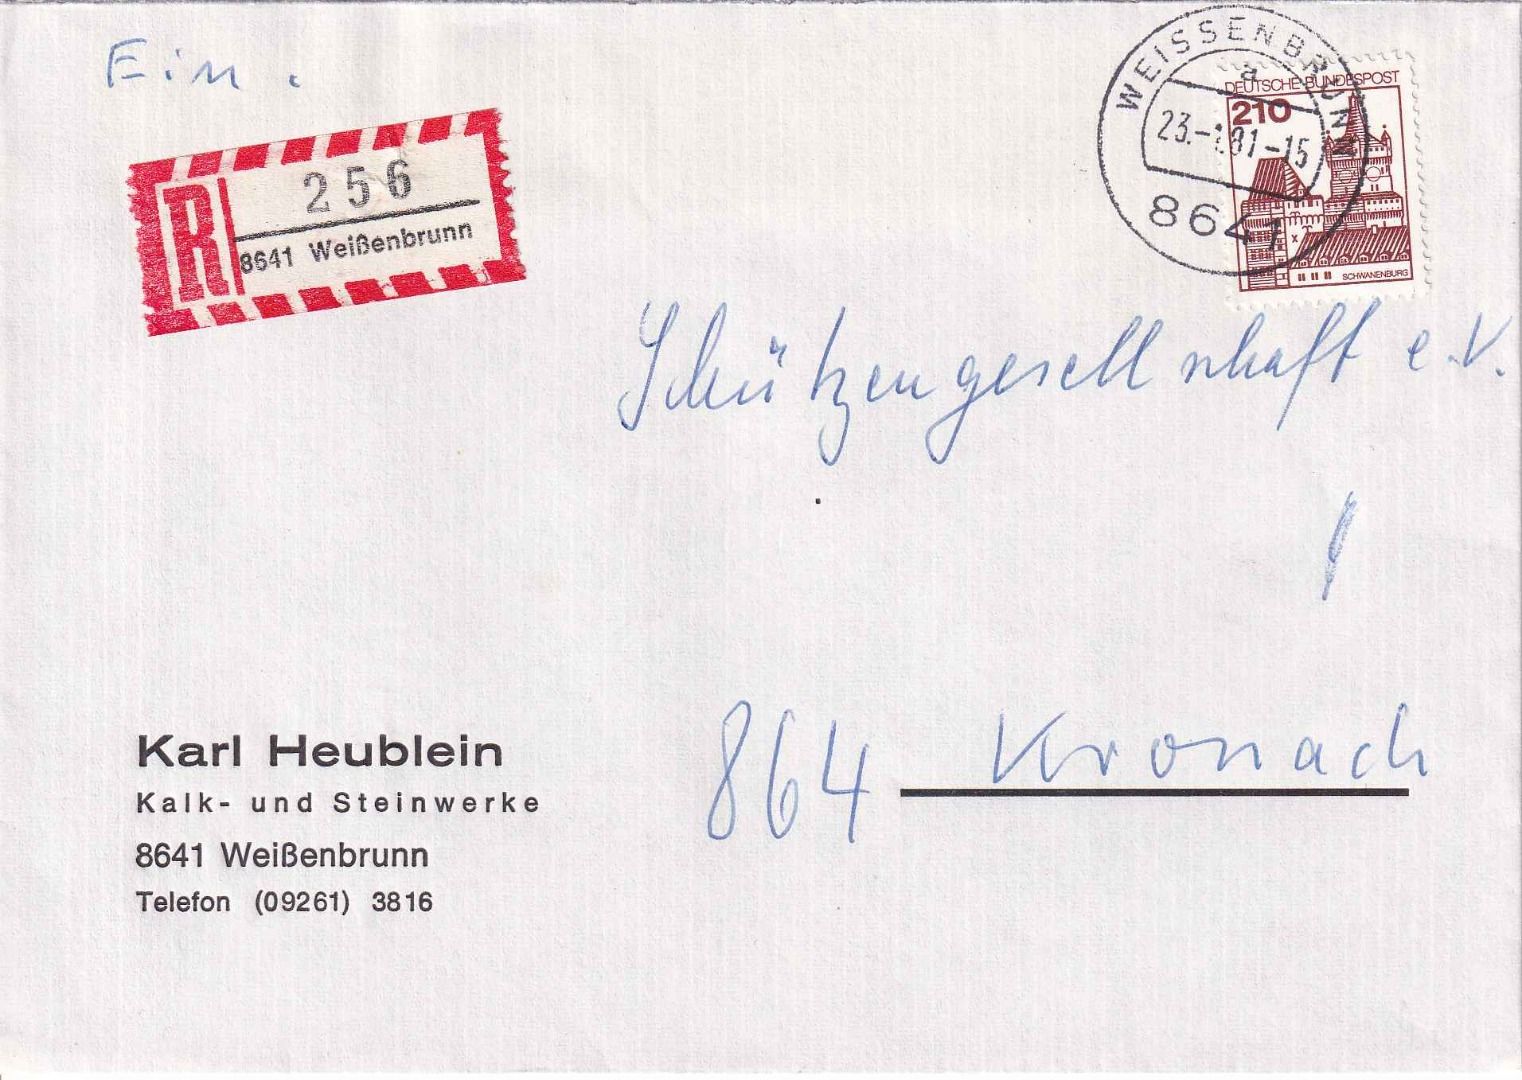 Ein.
WEISSENBRUNN
a
23.-1.81-15
8641
DEUTSCHE BUNDESPOST
210
SCHWANENBURG
R
256
8641 Weißenbrunn
Schützengesellschaft e.V.
864 Kronach
Karl Heublein
Kalk- und Steinwerke
8641 Weißenbrunn
Telefon (09261) 3816